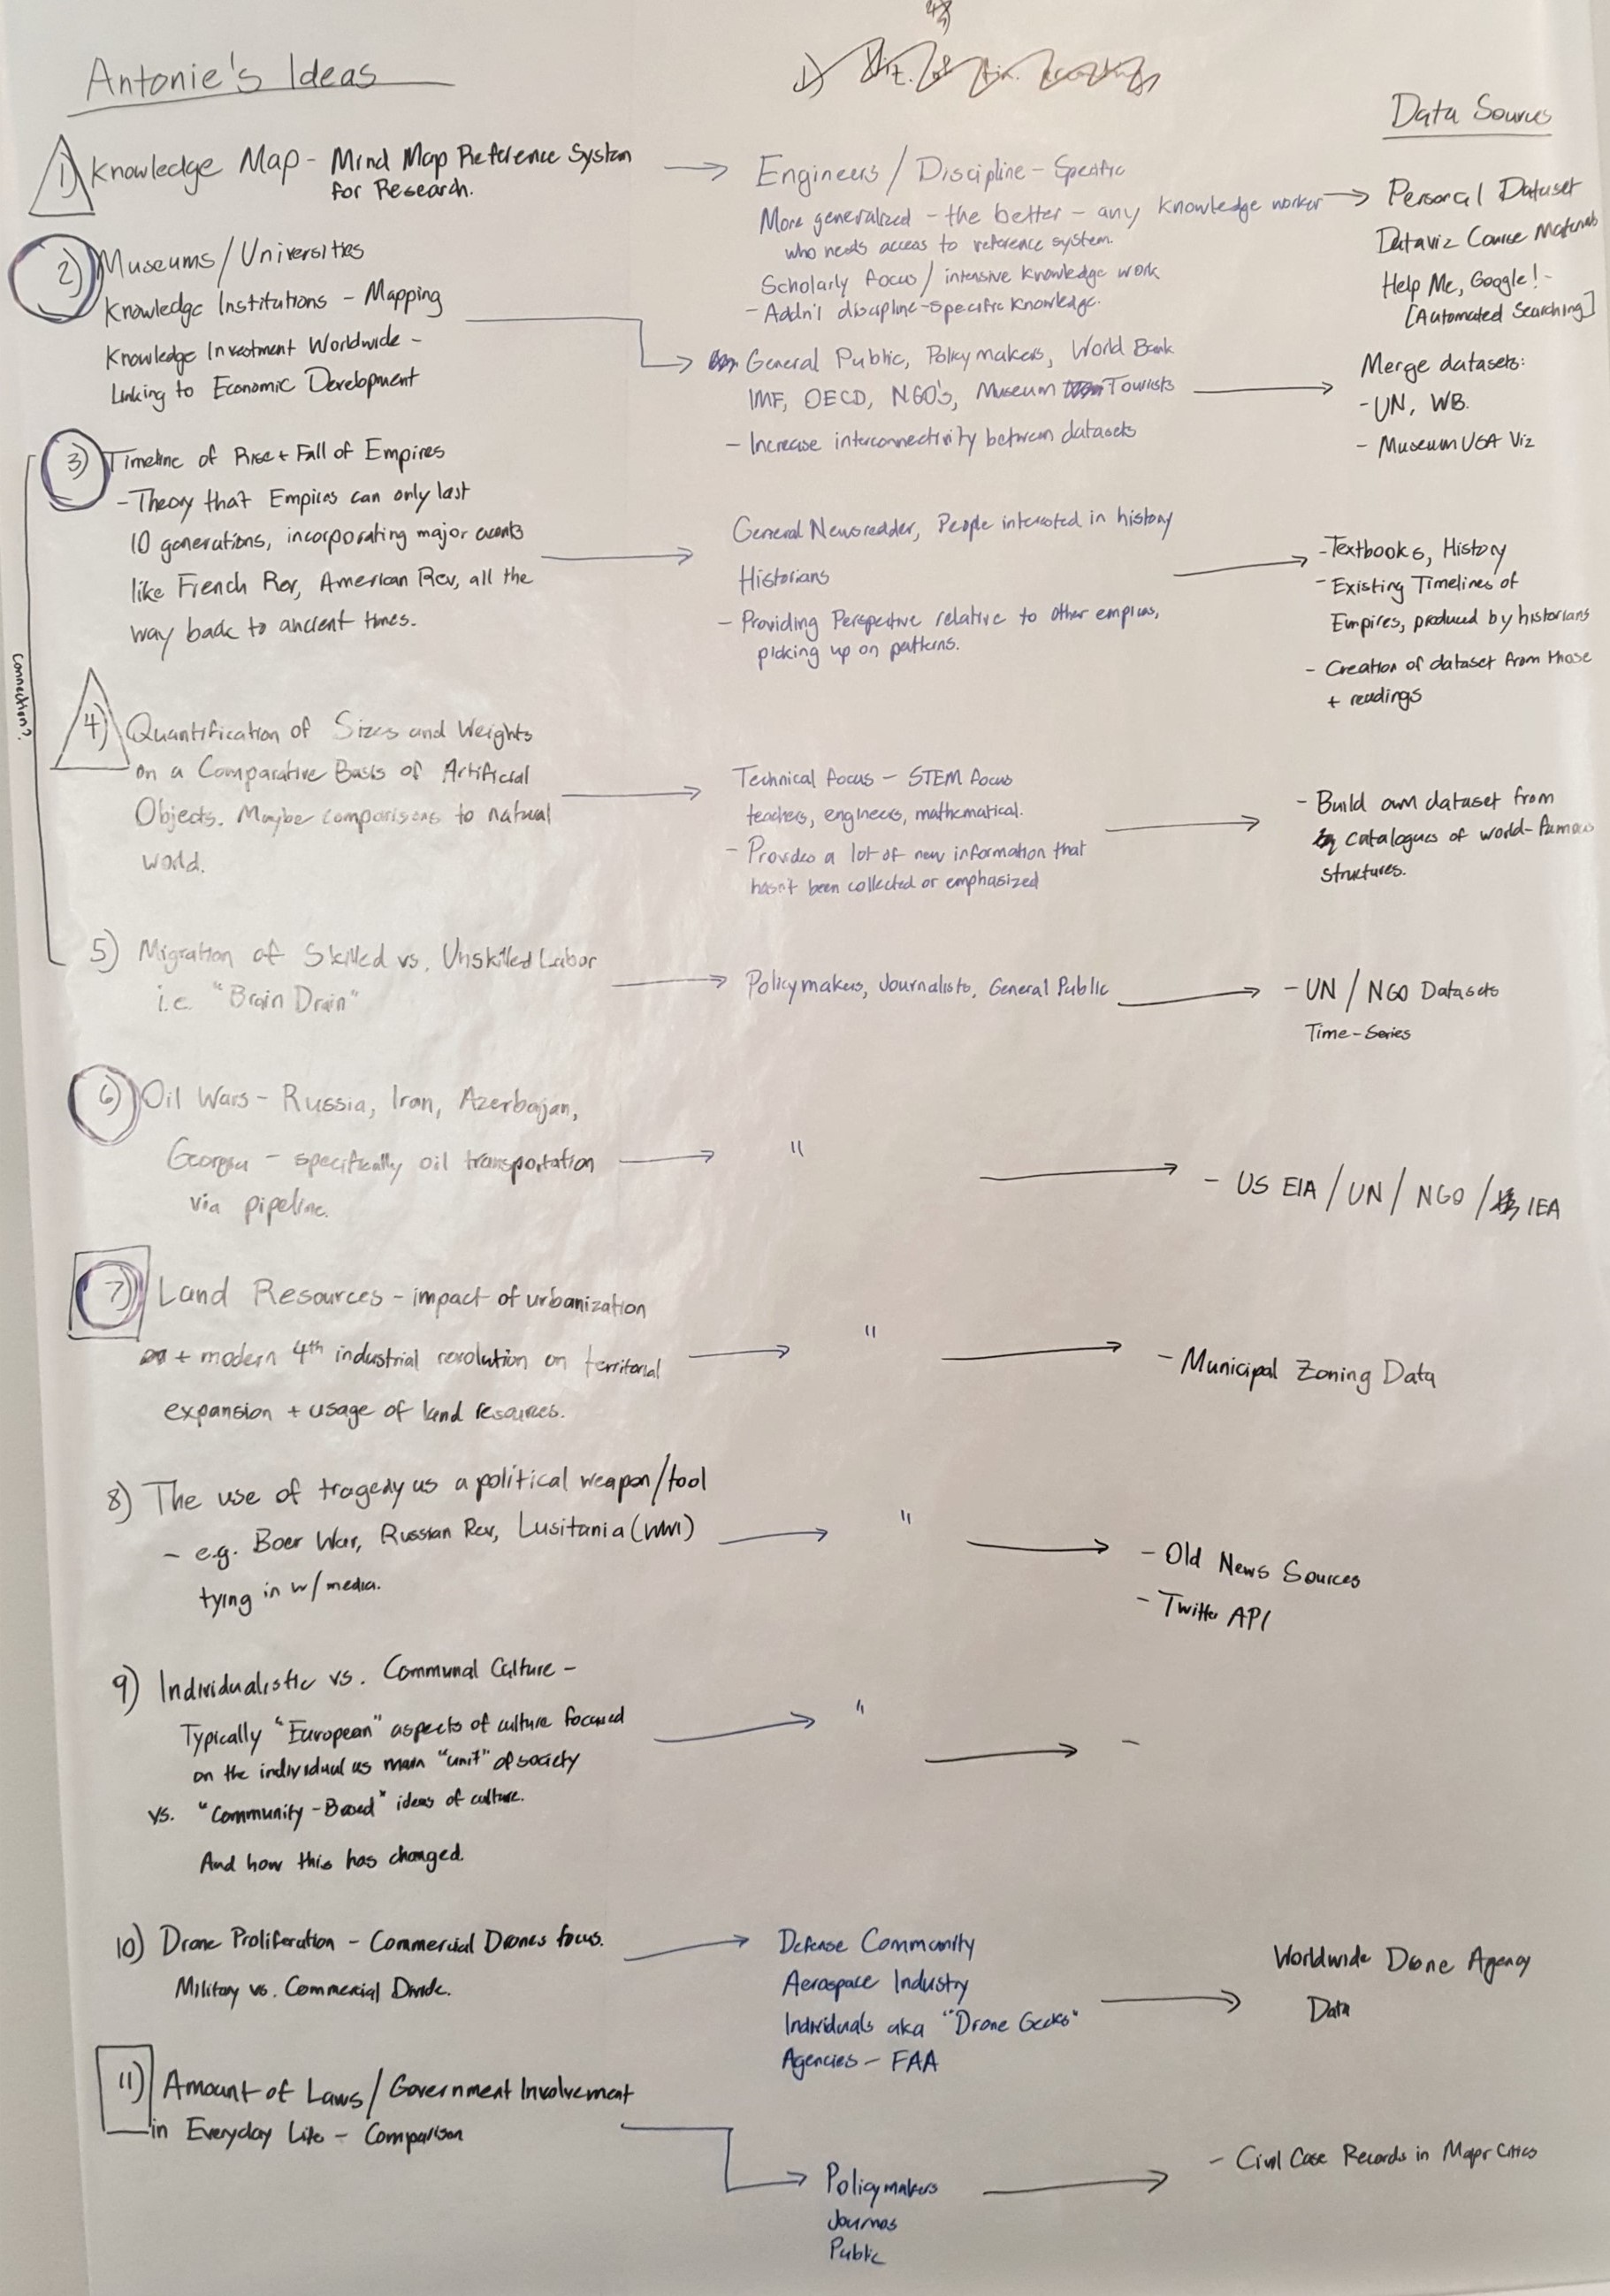 Antonie's Ideas
Data Sources
1) Knowledge Map - Mind Map Reference System
for Research.
Engineers / Discipline - Specific
More generalized - the better - any knowledge worker
who needs access to reference system.
Scholarly focus / intensive knowledge work
- Addn'l discipline-specific knowledge.
Personal Dataset
Dataviz Course Materials
Help Me, Google! -
[Automated Searching]
2) Museums/Universities
Knowledge Institutions - Mapping
Knowledge Investment Worldwide -
Linking to Economic Development
General Public, Policymakers, World Bank
IMF, OECD, NGO's, Museum Tourists
- Increase interconnectivity between datasets
Merge datasets:
- UN, WB.
- Museum USA Viz
3) Timeline of Rise + Fall of Empires
- Theory that Empires can only last
10 generations, incorporating major events
like French Rev, American Rev, all the
way back to ancient times.
General Newsreader, People interested in history
Historians
- Providing Perspective relative to other empires,
picking up on patterns.
- Textbooks, History
- Existing Timelines of
Empires, produced by historians
- Creation of dataset from those
+ readings
connection?
4) Quantification of Sizes and Weights
on a Comparative Basis of Artificial
Objects. Maybe comparisons to natural
world.
Technical focus - STEM focus
teachers, engineers, mathematical.
- Provides a lot of new information that
hasn't been collected or emphasized
- Build own dataset from
catalogues of world-famous
structures.
5) Migration of Skilled vs. Unskilled Labor
i.e. "Brain Drain"
Policymakers, Journalists, General Public
- UN / NGO Datasets
Time-Series
6) Oil Wars - Russia, Iran, Azerbajan,
Georgia - specifically oil transportation
via pipeline.
"
- US EIA / UN / NGO / IEA
7) Land Resources - impact of urbanization
+ modern 4th industrial revolution on territorial
expansion + usage of land resources.
"
- Municipal Zoning Data
8) The use of tragedy as a political weapon/tool
- e.g. Boer War, Russian Rev, Lusitania (WWI)
tying in w/ media.
"
- Old News Sources
- Twitter API
9) Individualistic vs. Communal Culture -
Typically "European" aspects of culture focused
on the individual as main "unit" of society
vs. "Community-Based" ideas of culture.
And how this has changed.
"
-
10) Drone Proliferation - Commercial Drones focus.
Military vs. Commercial Divide.
Defense Community
Aerospace Industry
Individuals aka "Drone Geeks"
Agencies - FAA
Worldwide Drone Agency
Data
11) Amount of Laws / Government Involvement
in Everyday Life - Comparison
Policymakers
Journos
Public
- Civil Case Records in Major Cities